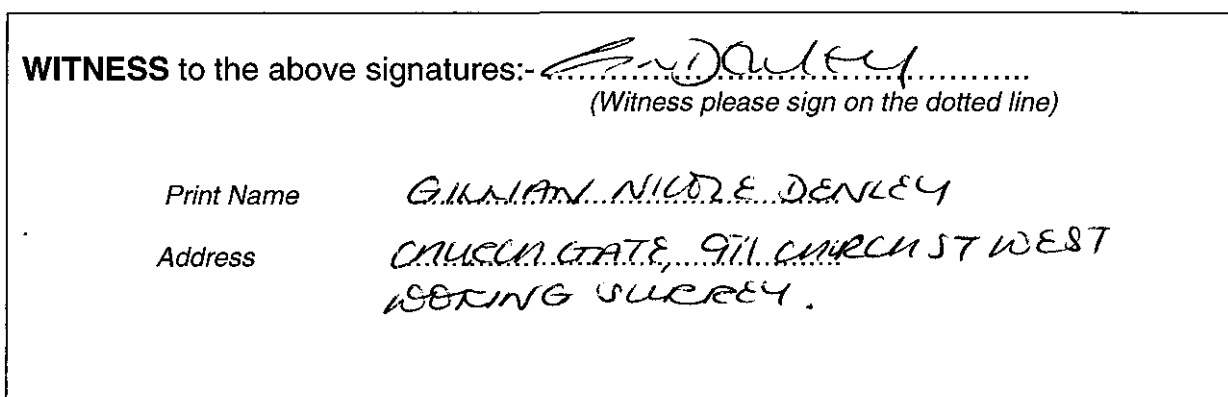 WITNESS to the above signatures:- GNDenley
(Witness please sign on the dotted line)
Print Name GILLIAN NICOLE DENLEY
Address CHURCH GATE, 9/11 CHURCH ST WEST
WOKING SURREY.